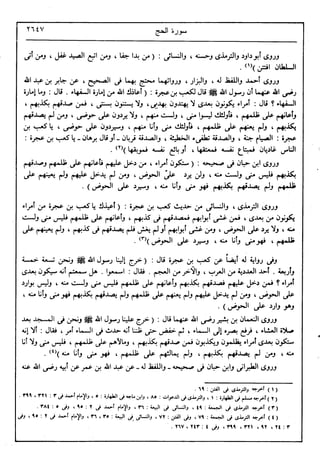 سورة الحج ٢٦٤٧
وروى أبو داود والترمذى وحسنه ، والنسائى : ( من بدا جفا ، ومن اتبع الصيد غفل ، ومن أتى
السلطان افتتن )(١) .
وروى أحمد واللفظ له ، والبزار ، ورواتهما محتج بهما فى الصحيح ، عن جابر بن عبد الله
رضى الله عنهما أن رسول الله ﷺ قال لكعب بن عجرة : ( أعاذك الله من إمارة السفهاء . قال : وما إمارة
السفهاء ؟ قال : أمراء يكونون بعدى لا يهتدون بهديى ، ولا يستنون بسنتى ، فمن صدقهم بكذبهم ،
وأعانهم على ظلمهم ، فأولئك ليسوا منى ، ولست منهم ، ولا يردون على حوضى ، ومن لم يصدقهم
بكذبهم ، ولم يعنهم على ظلمهم ، فأولئك منى وأنا منهم ، وسيردون على حوضى ، يا كعب بن
عجرة : الصيام جنة ، والصدقة تطفىء الخطيئة ، والصلاة قربان - أو قال برهان - يا كعب بن عجرة :
الناس غاديان فمبتاع نفسه فمعتقها ، أو بائع نفسه فموبقها )(٢) .
وروى ابن حبان فى صحيحه : ( ستكون أمراء ، من دخل عليهم فأعانهم على ظلمهم وصدقهم
بكذبهم فليس منى ولست منه ، ولن يرد علىّ الحوض ، ومن لم يدخل عليهم ولم يعنهم على
ظلمهم ولم يصدقهم بكذبهم فهو منى وأنا منه ، وسيرد على الحوض ) .
وروى الترمذى ، والنسائى من حديث كعب بن عجرة : ( أعيذك يا كعب بن عجرة من أمراء
يكونون من بعدى ، فمن غشى أبوابهم فصدقهم فى كذبهم ، وأعانهم على ظلمهم فليس منى ولست
منه ، ولا يرد على الحوض ، ومن غشى أبوابهم أو لم يغش فلم يصدقهم فى كذبهم ، ولم يعنهم على
ظلمهم ، فهو منى وأنا منه ، وسيرد على الحوض )(٣) .
وفى رواية له أيضاً عن كعب بن عجرة قال : ( خرج إلينا رسول الله ﷺ ونحن تسعة خمسة
وأربعة . أحد العددين من العرب ، والآخر من العجم . فقال : اسمعوا . هل سمعتم أنه سيكون بعدى
أمراء ؟ فمن دخل عليهم فصدقهم بكذبهم وأعانهم على ظلمهم فليس منى ولست منه ، وليس بوارد
على الحوض ، ومن لم يدخل عليهم ولم يعنهم على ظلمهم ولم يصدقهم بكذبهم فهو منى وأنا منه ،
وهو وارد على الحوض ) .
وروى النعمان بن بشير رضى الله عنهما قال : ( خرج علينا رسول الله ﷺ ونحن فى المسجد بعد
صلاة العشاء ، فرفع بصره إلى السماء ، ثم خفض حتى ظننا أنه حدث فى السماء أمر ، فقال : ألا إنه
ستكون بعدى أمراء يظلمون ويكذبون فمن صدقهم بكذبهم ، ومالأهم على ظلمهم ، فليس منى ولا أنا
منه ، ومن لم يصدقهم بكذبهم ، ولم يمالئهم على ظلمهم ، فهو منى وأنا منه )(٤) .
وروى الطبرانى وابن حبان فى صحيحه - واللفظ له - عن عبد الله بن عمر عن أبيه رضى الله عنه
(١) أخرجه الترمذى فى الفتن : ٦٩ .
(٢) أخرجه مسلم فى الطهارة : ١ ، والترمذى فى الدعوات : ٨٥ ، وابن ماجه فى الطهارة : ٥ ، والإمام أحمد فى ٣ : ٣٢١ ، ٣٩٩ .
(٣) أخرجه الترمذى فى الجمعة : ٤٩ ، والنسائى فى البيعة : ٣٦ ، والإمام أحمد فى ٢ : ٩٥ ، وفى ٥ : ٣٨٤ .
(٤) أخرجه الترمذى فى الجمعة : ٧٩ ، وفى الفتن : ٧٢ ، والنسائى فى البيعة : ٣٥ ، ٣٦ ، والإمام أحمد فى ٢ : ٩٥ ، وفى
٣ : ٢٤ ، ٩٢ ، ٣٢١ ، ٣٩٩ ، وفى ٤ : ٢٤٣ ، ٢٦٧ .